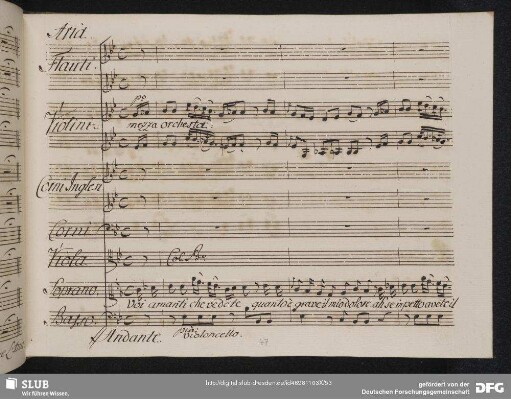 Aria.
Flauti.
Violini.
mezza orchestra.
Corni Inglesi
Corni
Viola
Col B.
Soprano.
Voi amanti che vedete quanto è grave il mio dolore ah se in petto avete il
Basso.
Andante.
Violoncello.
SLUB
Wir führen Wissen.
gefördert von der
Deutschen Forschungsgemeinschaft
DFG